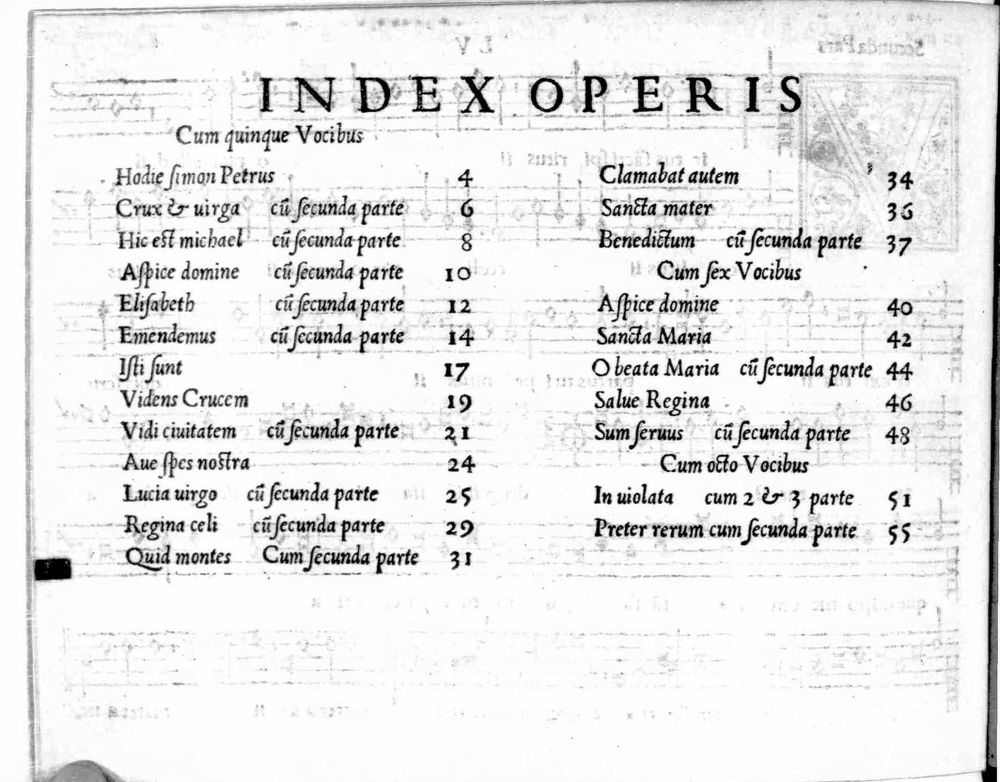 INDEX OPERIS
Cum quinque Vocibus
Hodie ſimon Petrus 4
Crux & uirga cū ſecunda parte 6
Hic est michael cū ſecunda parte 8
Aſpice domine cū ſecunda parte 10
Eliſabeth cū ſecunda parte 12
Emendemus cū ſecunda parte 14
Iſti ſunt 17
Videns Crucem 19
Vidi ciuitatem cū ſecunda parte 21
Aue ſpes nostra 24
Lucia uirgo cū ſecunda parte 25
Regina celi cū ſecunda parte 29
Quid montes Cum ſecunda parte 31
Clamabat autem 34
Sancta mater 36
Benedictum cū ſecunda parte 37
Cum ſex Vocibus
Aſpice domine 40
Sancta Maria 42
O beata Maria cū ſecunda parte 44
Salue Regina 46
Sum ſeruus cū ſecunda parte 48
Cum octo Vocibus
In uiolata cum 2 & 3 parte 51
Preter rerum cum ſecunda parte 55